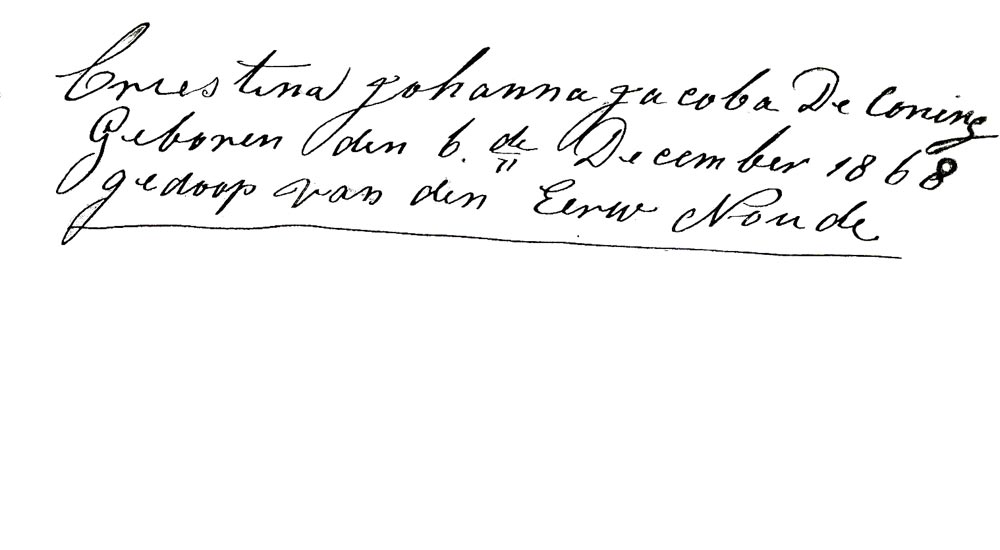 Criestina Johanna Jacoba De Coning
Geboren den 6. de December 1868
gedoop van den Eerw Noude